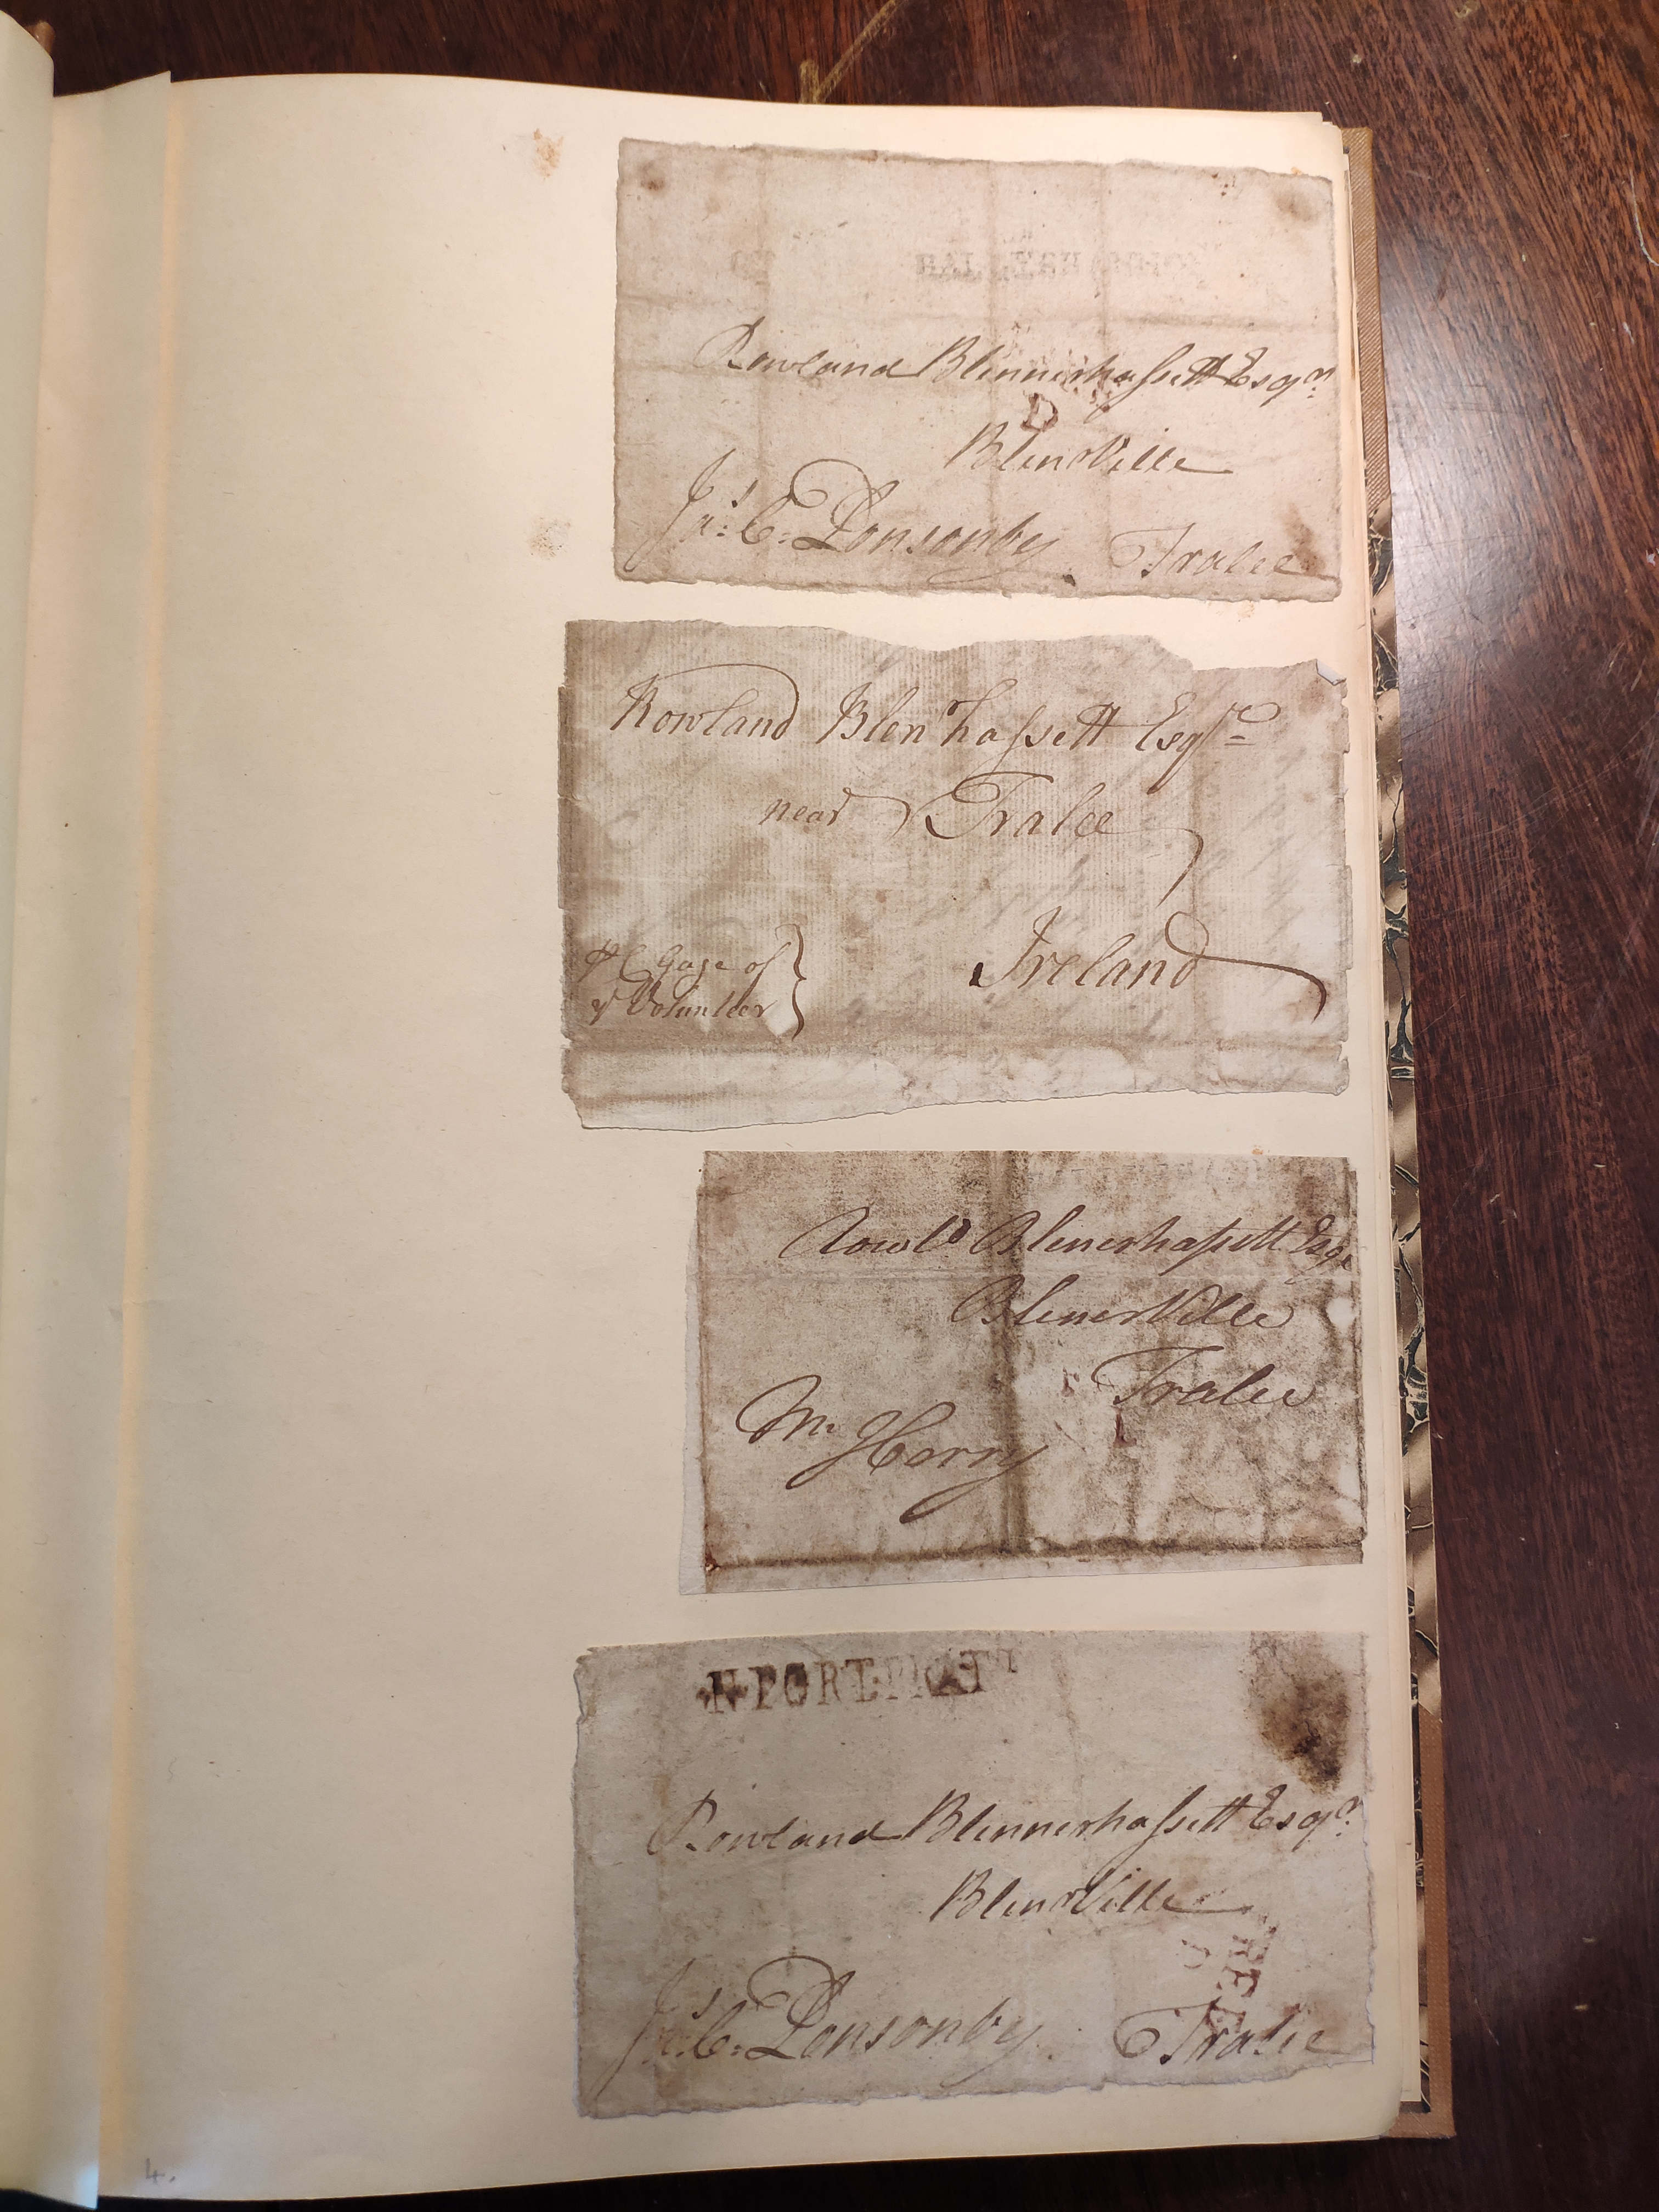 Rowland Blennerhassett Esqr.
D
BlenrVille
Jas: C: Ponsonby
Tralee
Rowland Blenrhassett Esqr
near Tralee
Ireland
Gage of
ye Volunteer
Rowld Blenerhassett Esqr
BlenerVille
Tralee
Mr Herry
N·PORT·PRATT
Rowland Blennerhassett Esqr.
BlenrVille
Jas: C: Ponsonby
Tralee
4.